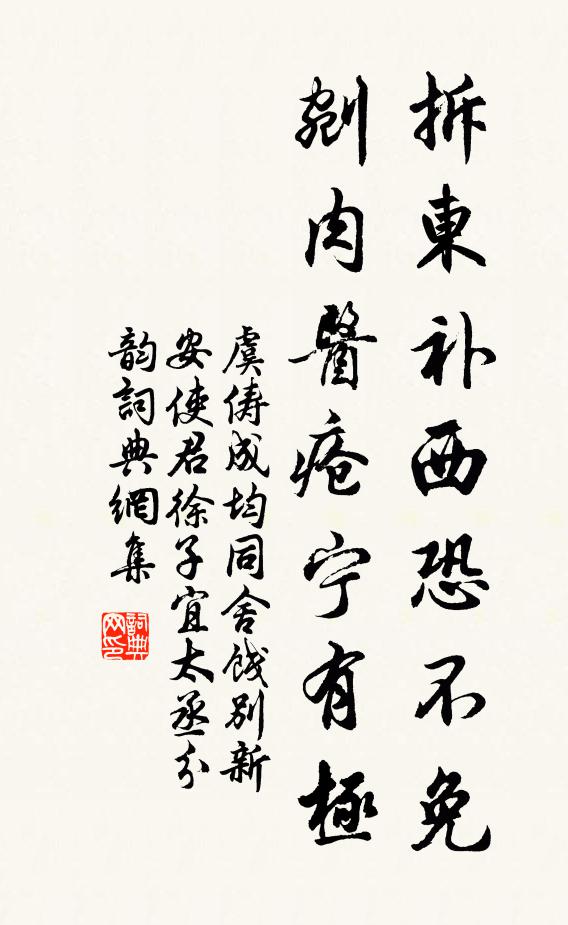 拆東补西恐不免
剜肉醫疮宁有極
虞俦成均同舍餞别新
安使君徐子宜太丞分
韵詞典網集
詞典
网印